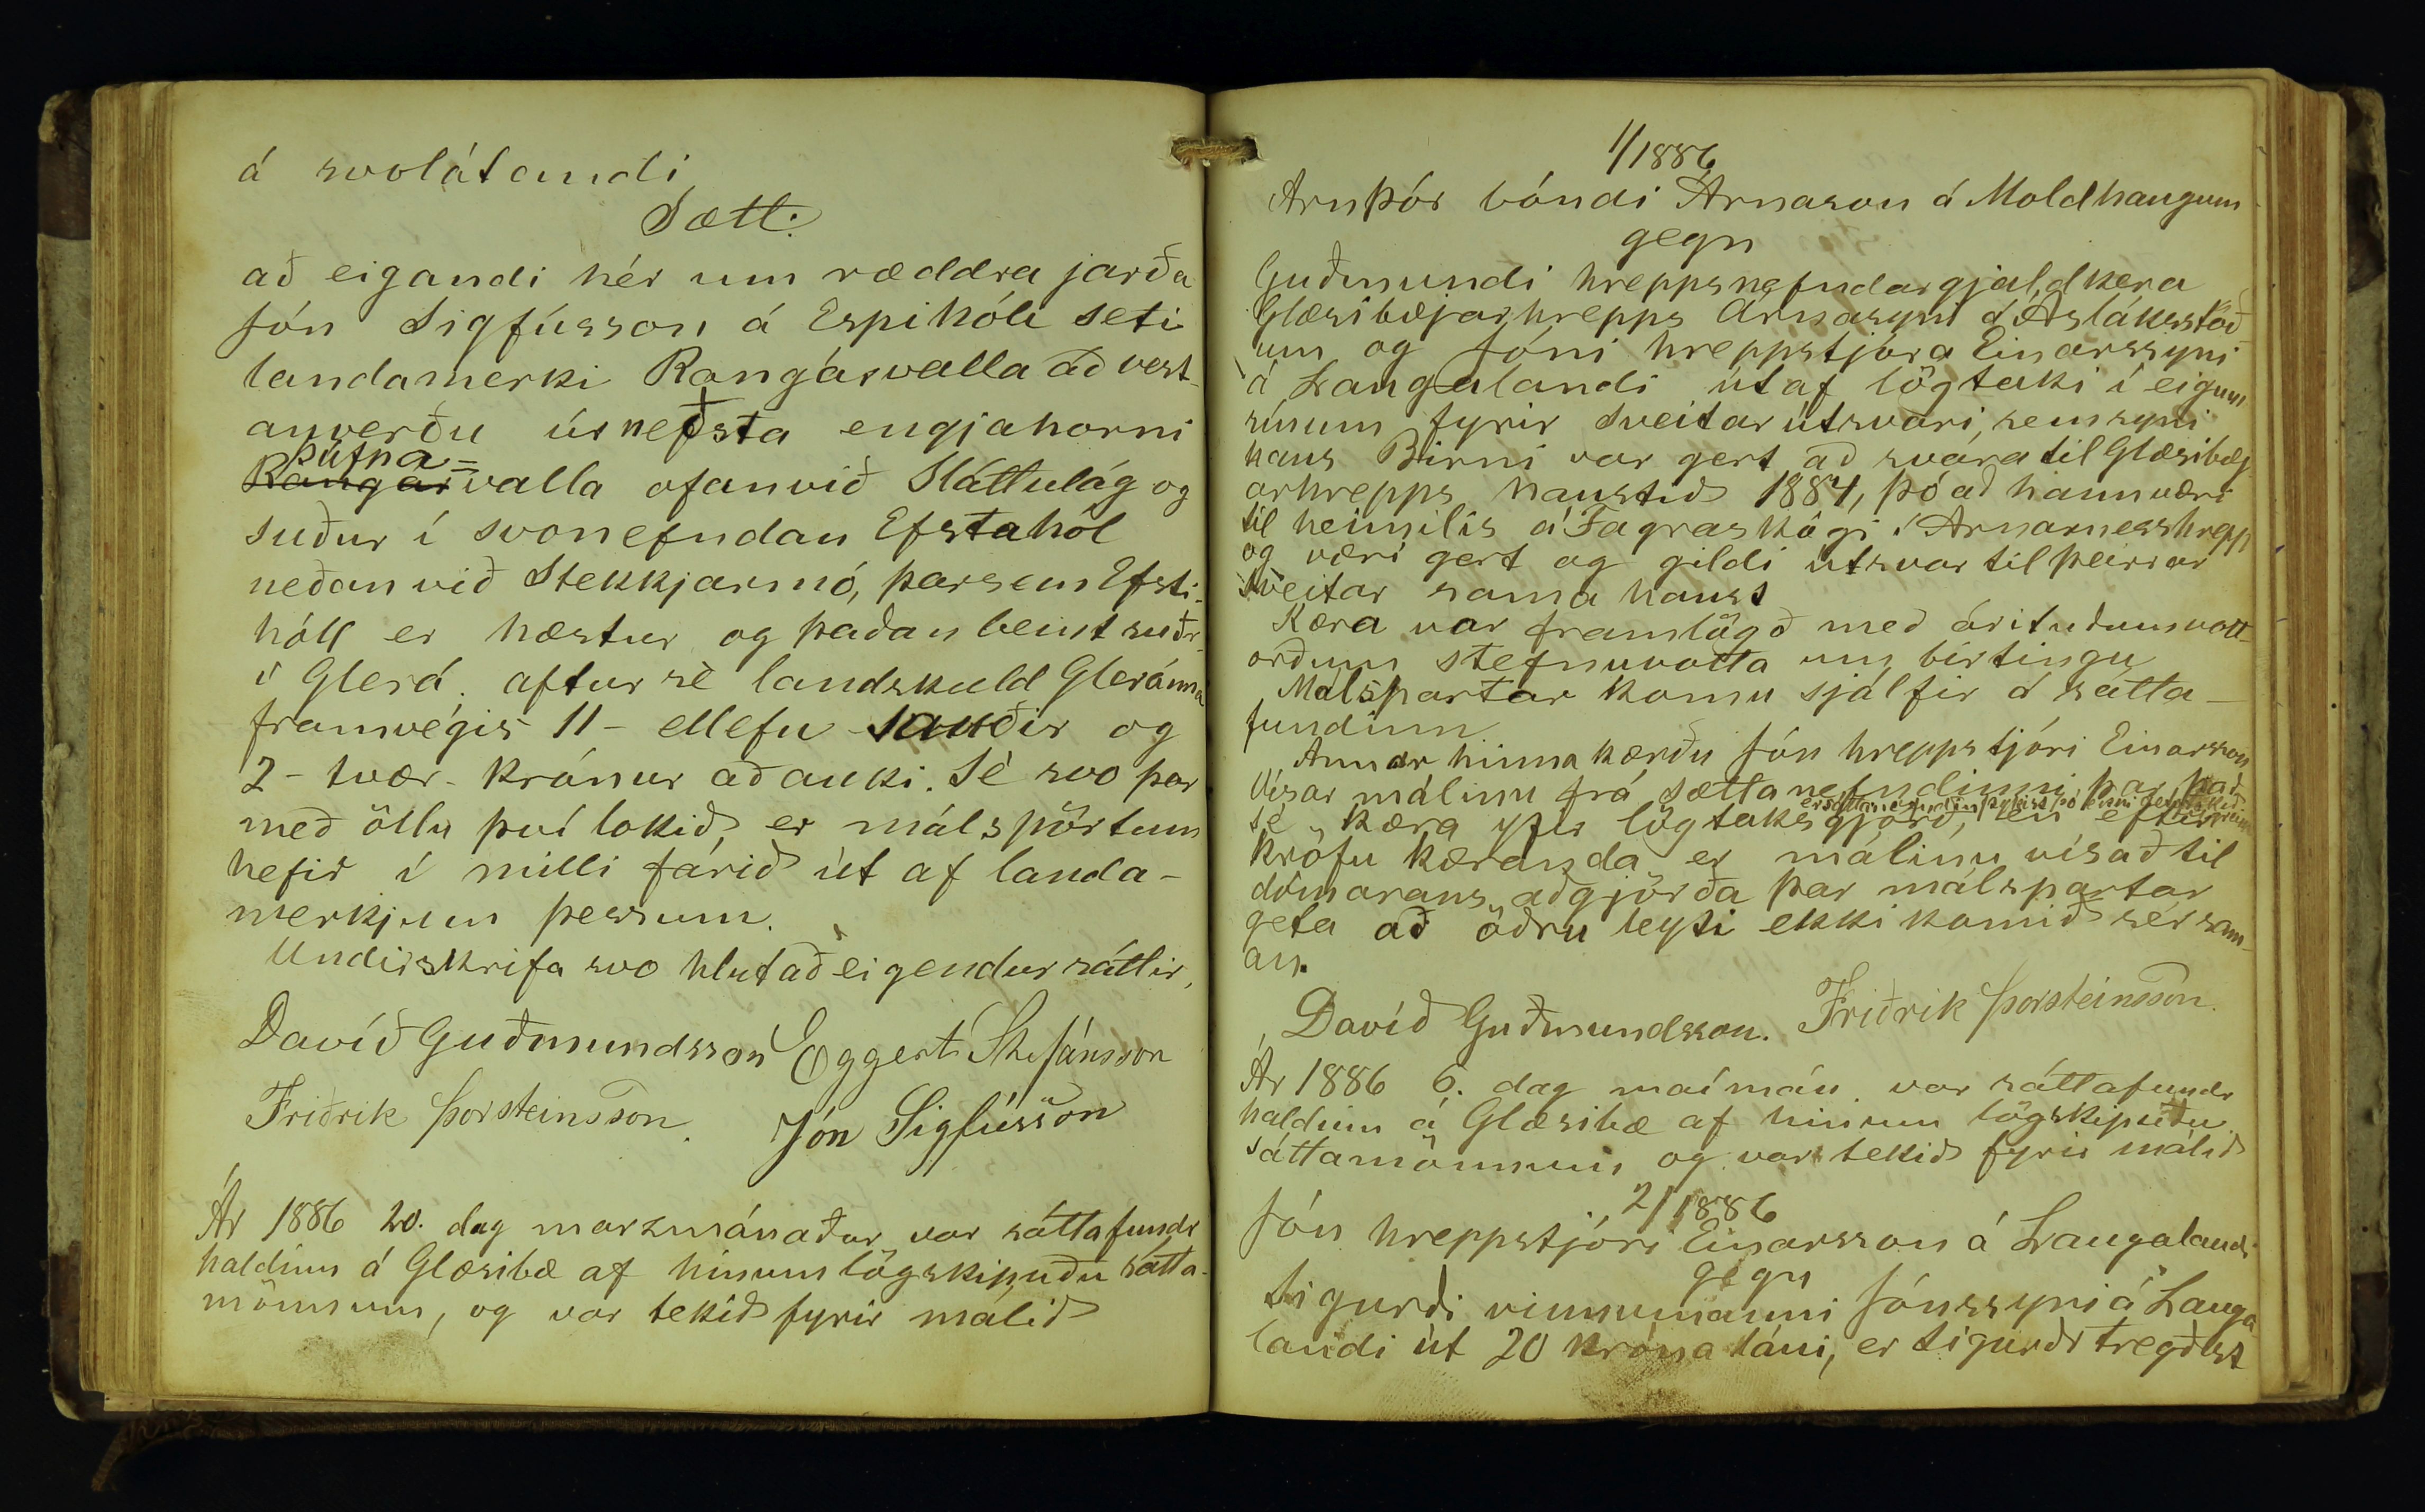 á svolátandi
Sætt:
að eigandi hér um ræddra jarða
Jón Sigfússon á Espihóli seti
landamerki Rangárvalla að vest-
anverðu úr neðsta engjahorni
Þúfna=
Rangárvalla ofanvið Sláttulág og
suður í svonefndan Efstahól
neðanvið Stekkjarmó, þarsem Efsti-
hóll er hæstur og þaðan beint suðr
í Glerá. aftur sé landskuld Gleránna
framvegis 11 - ellefu - sauðir og
2 - tvær - krónur að auki. Sé svo þar
með öllu því lokið, er málspörtum
hefir í milli farið út af landa-
merkjum þessum.
Undirskrifa svo hlutaðeigendur sáttir,
Davíð Guðmundsson Eggert Stefánsson
Friðrik Þorsteinsson. Jón Sigfússon
Ár 1886 20. dag marzmánaðar var sáttafundr
haldinn á Glæsibæ af hinum lögskipuðu sátta-
mönnum, og var tekið fyrir málið
1/1886
Arnþór bóndi Árnason á Moldhaugum
gegn
Guðmundi hreppsnefndargjaldkera
Glæsibæjarhrepps Árnasyni á Ásláksstöð-
um og Jóni hreppstjóra Einarssyni
á Langalandi útaf lögtaki í eigum
sínum fyrir sveitarútsvari, sem syni
hans Birni var gert að svara til Glæsibæj-
arhrepps haustið 1884, þó að hann væri
til heimilis á Fagraskógi í Arnarnesshrepp
og væri gert og gildi útsvar til þeirrar
sveitar sama haust
Kæra var framlögð með árituðum vott-
orðum stefnuvotta um birtingu
Málspartar komu sjálfir á sátta-
fundinn
Annar hinna kærðu Jón hreppstjóri Einarsson
Vísar málinu frá sættanefndinni, þar það
sé „kæra yfir lögtaksgjörð, en eftir
kröfu kæranda er málinu vísað til
dómarans aðgjörða þar málspartar
geta að öðru leyti ekki komið sér sam-
an.
Davíð Guðmundsson. Friðrik Þorsteinsson.
Ár 1886 6. dag maímán. var sáttafundr
haldinn á Glæsibæ af hinum lögskipuðu
sáttamönnum og var tekið fyrir málið
2/1886
Jón hreppstjóri Einarsson á Langalandi
gegn
Sigurði vinnumanni Jónssyni á Langa
landi út 20 króna láni, er Sigurðr tregðast